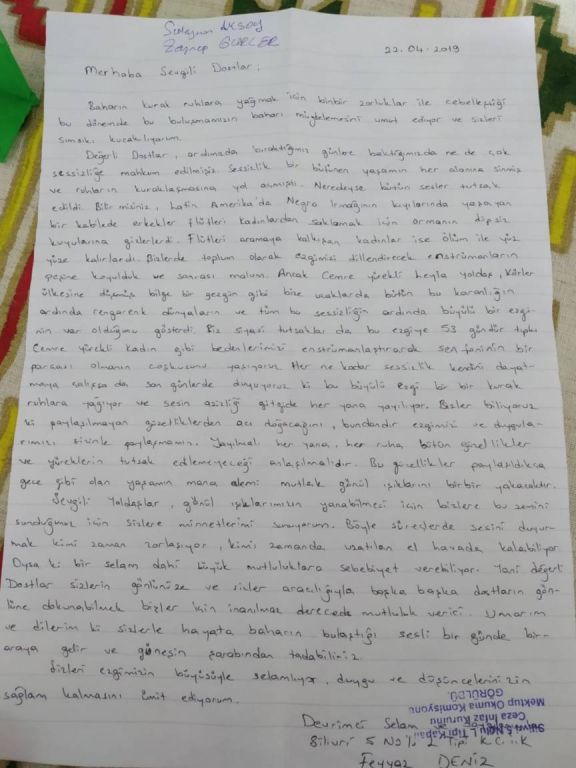 Süleyman AKSOY
Zeynep GÜRLER
22.04.2019
Merhaba Sevgili Dostlar,
Baharın kurak ruhlara yağmak için binbir zorluklar ile cebelleştiği
bu dönemde bu buluşmamızın baharı müjdelemesini umut ediyor ve sizleri
sımsıkı kucaklıyorum.
Değerli Dostlar, ardımızda bıraktığımız günlere baktığımızda ne de çok
sessizliğe mahkum edilmişiz. Sessizlik bir bütünen yaşamın her alanına sinmiş
ve ruhların kuraklaşmasına yol açmıştı. Neredeyse bütün sesler tutsak
edildi. Bilir misiniz, Latin Amerika'da Negro Irmağının kıyılarında yaşayan
bir kabilede erkekler flütleri kadınlardan saklamak için ormanın dipsiz
kuyularına gizlerlerdi. Flütleri aramaya kalkışan kadınlar ise ölüm ile yüz
yüze kalırlardı. Bizlerde toplum olarak ezgimizi dillendirecek enstrümanların
peşine koyulduk ve sonrası malum. Ancak Cemre yürekli Leyla yoldaş, körler
ülkesine düşmüş bilge bir gezgin gibi bize uzaklarda bütün bu karanlığın
ardında rengarenk dünyaların ve tüm bu sessizliğin ardında büyülü bir ezgi-
nin var olduğunu gösterdi. Biz siyasi tutsaklar da bu ezgiye 53 gündür tıpkı
Cemre yürekli kadın gibi bedenlerimizi enstrümanlaştırarak senfoninin bir
parçası olmanın coşkusunu yaşıyoruz. Her ne kadar sessizlik kendini dayat-
maya çalışsa da son günlerde duyuyoruz ki bu büyülü ezgi bir bir kurak
ruhlara yağıyor ve sesin azizliği gitgide her yana yayılıyor. Bizler biliyoruz
ki paylaşılmayan güzelliklerden acı doğacağını, bundandır ezgimizi ve duygula-
rımızı sizinle paylaşmamız. Yayılmalı her yana, her ruha bütün güzellikler
ve yüreklerin tutsak edilemeyeceği anlaşılmalıdır. Bu güzellikler paylaşıldıkça
gece gibi olan yaşamın mana alemi mutlak gönül ışıklarını birbir yakacaktır.
Sevgili Yoldaşlar, gönül ışıklarımızın yanabilmesi için bizlere bu zemini
sunduğunuz için sizlere minnetlerimi sunuyorum. Böyle süreçlerde sesini duyur-
mak kimi zaman zorlaşıyor, kimi zamanda uzatılan el havada kalabiliyor.
Oysa ki bir selam dahi büyük mutluluklara sebebiyet verebiliyor. Yani değerli
Dostlar sizlerin gönlünüze ve sizler aracılığıyla başka başka dostların gön-
lüne dokunabilmek bizler için inanılmaz derecede mutluluk verici. Umarım
ve dilerim ki sizlerle hayata baharın bulaştığı sesli bir günde bir-
araya gelir ve güneşin şarabından tadabiliriz.
Sizleri ezgimizin büyüsüyle selamlıyor, duygu ve düşüncelerinizin
sağlam kalmasını ümit ediyorum.
Devrimci Selam ve
Silivri 5 No'lu L Tipi K.C.İ.K
Feyyaz DENİZ
Silivri 5 Nolu L Tipi Kapalı
Ceza İnfaz Kurumu
Mektup Okuma Komisyonu
GÖRÜLDÜ